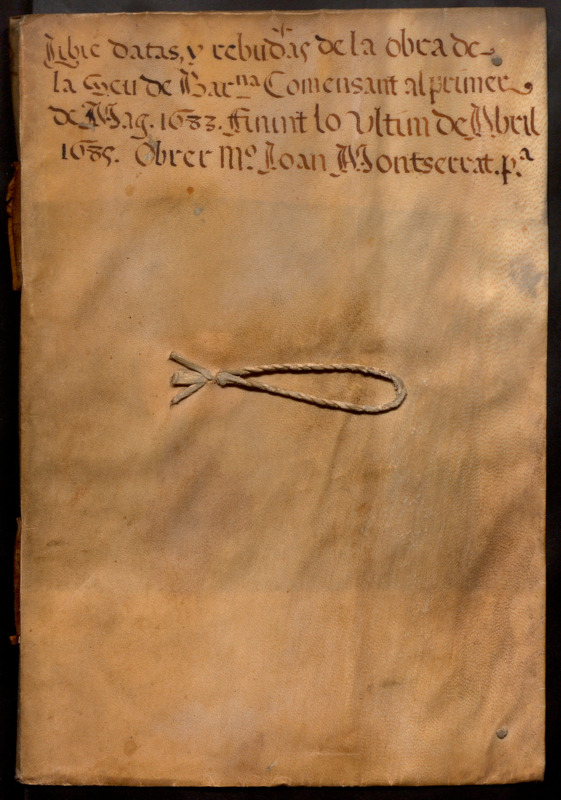 Llibre datas, y rebudas de la obra de
la Seu de Bar.na Comensant al primer
de Mag. 1683. Finint lo Ultim de Abril
1685. Obrer Mº. Joan Montserrat. p.a